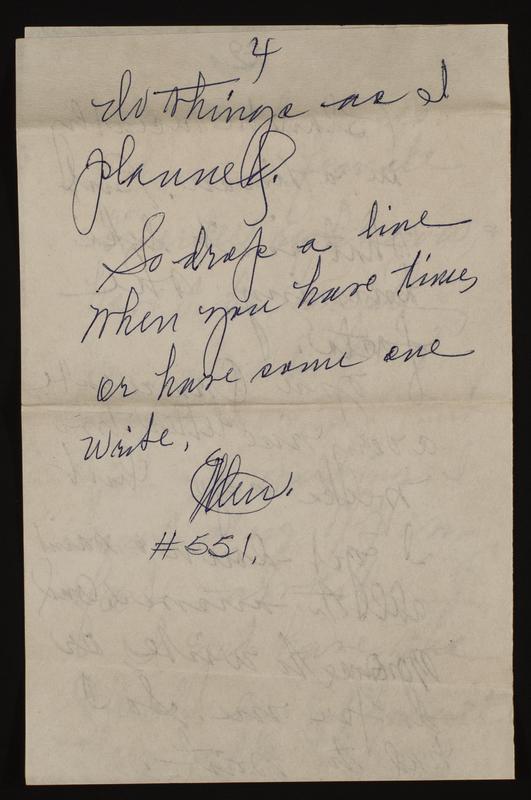 4
do things as I
planned.
So drop a line
when you have times
or have some one
write,
#551.